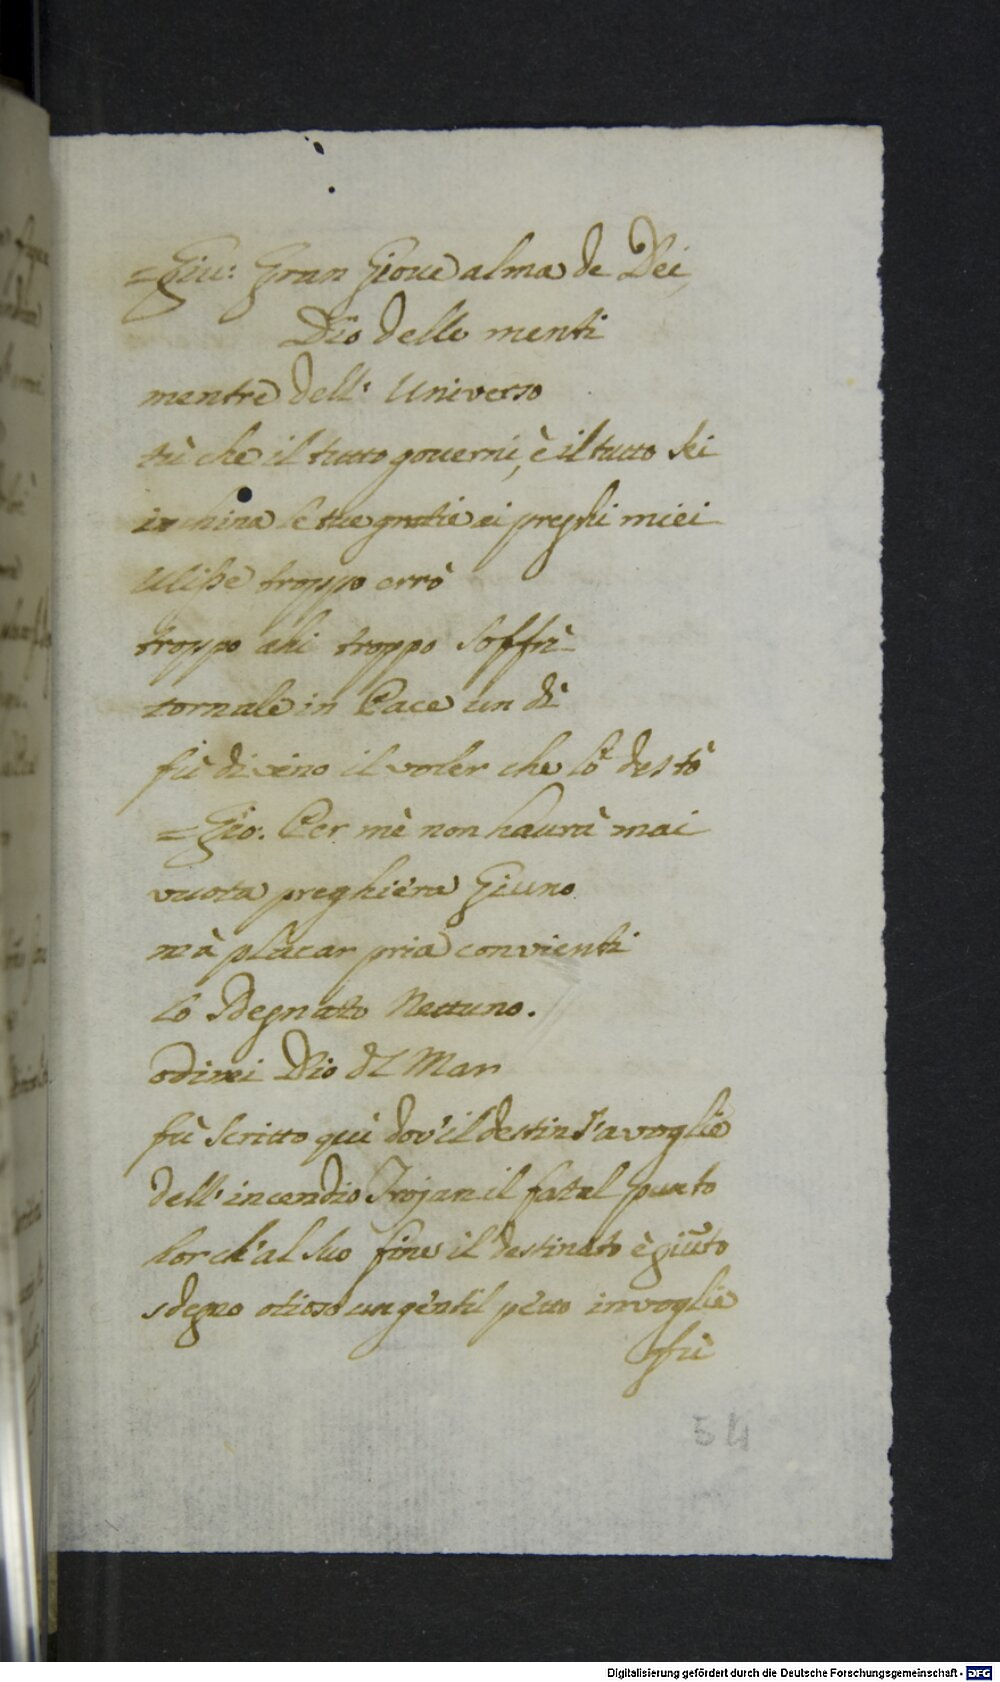 =Giu: Gran Gioue alma de Dei,
Dio delle menti
mentre dell' Universo
tù che il tutto gouerni, è il tutto sei
inchina le tue gratie ai preghi miei
Ulisse troppo errò
troppo ahi troppo soffrì
tornale in Pace un dì
fù divino il voler che lo destò
=Gio: Per mè non haurà mai
vuota preghiera Giuno
mà placar pria convienti
lo Sdegnato Nettuno.
odimi Dio dl Mar
fù scritto quì dov'il destin s'avoglie
dell' incendio Trojan il fatal punto
hor ch'al suo fine il destinato è giunto
sdegno otioso un gentil petto invoglie
fù
54
Digitalisierung gefördert durch die Deutsche Forschungsgemeinschaft - DFG